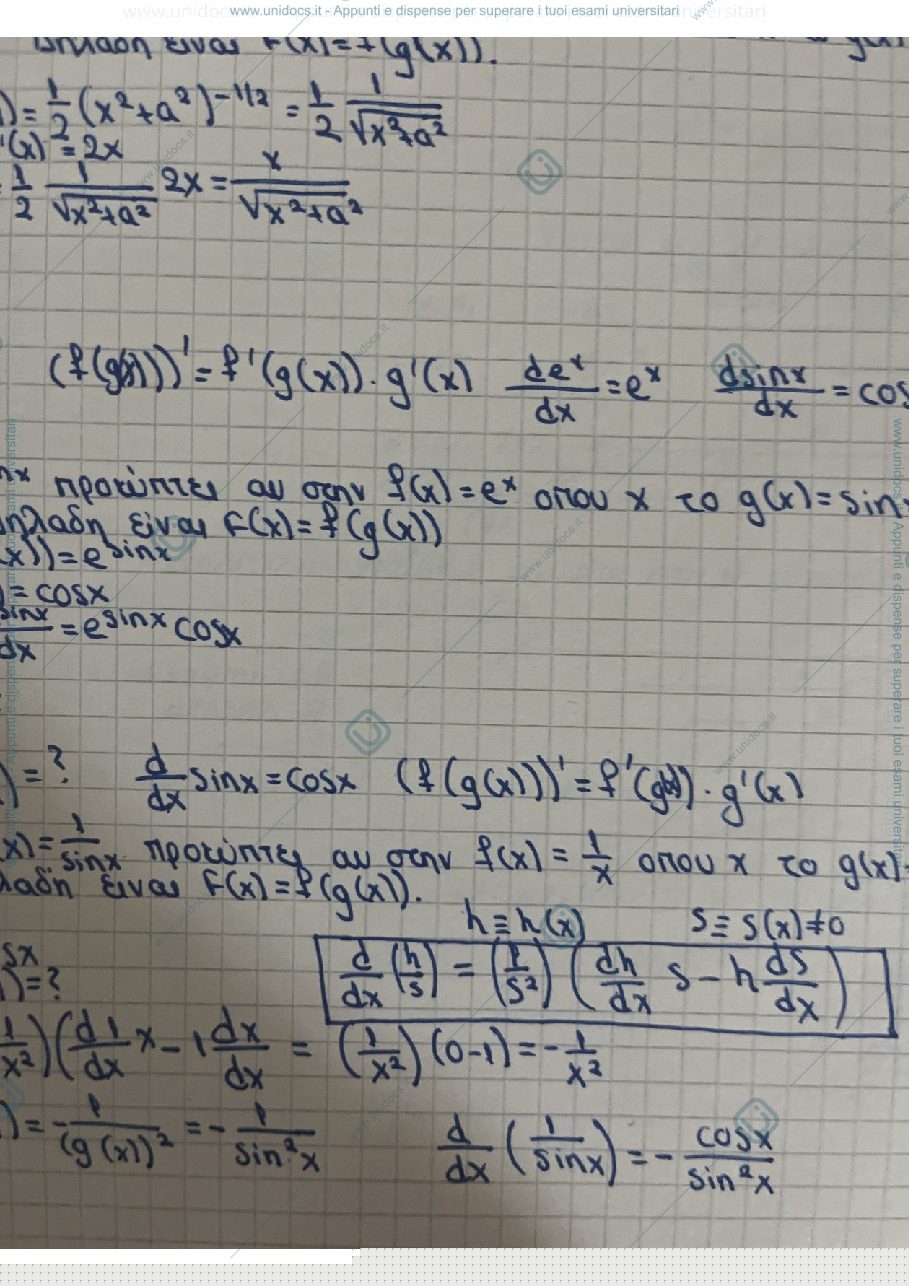 www.unidocs.it - Appunti e dispense per superare i tuoi esami universitari
δηλαδή είναι F(x)=f(g(x)).
)=1/2 (x²+a²)^-1/2 = 1/2 1/√x²+a²
'(x)=2x
1/2 1/√x²+a² 2x = x/√x²+a²
(f(g(x)))'=f'(g(x))·g'(x) de^x/dx=e^x dsinx/dx=cos
προκύπτει αν στην f(x)=e^x όπου x το g(x)=sin
ηλαδή είναι F(x)=f(g(x))
x))=e^sinx
)=cosx
sinx/dx=e^sinx cosx
)=? d/dx sinx=cosx (f(g(x)))'=f'(g(x))·g'(x)
x)=1/sinx προκύπτει αν στην f(x)=1/x όπου x το g(x)
λαδή είναι F(x)=f(g(x)).
h≡h(x) s≡s(x)≠0
d/dx(h/s)=(1/s²)(dh/dx s-h ds/dx)
)=?
1/x²)(d1/dx x-1 dx/dx = (1/x²)(0-1)=-1/x²
)=-1/(g(x))²=-1/sin²x d/dx(1/sinx)=-cosx/sin²x